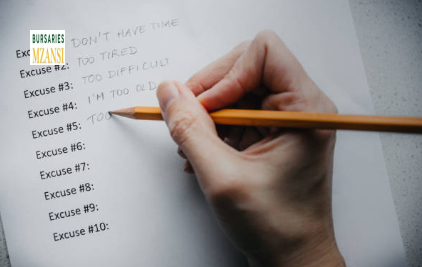 BURSARIES
MZANSI
DON'T HAVE TIME
Excuse #2: TOO TIRED
Excuse #3: TOO DIFFICULT
Excuse #4: I'M TOO OLD
Excuse #5: TO
Excuse #6:
Excuse #7:
Excuse #8:
Excuse #9:
Excuse #10: